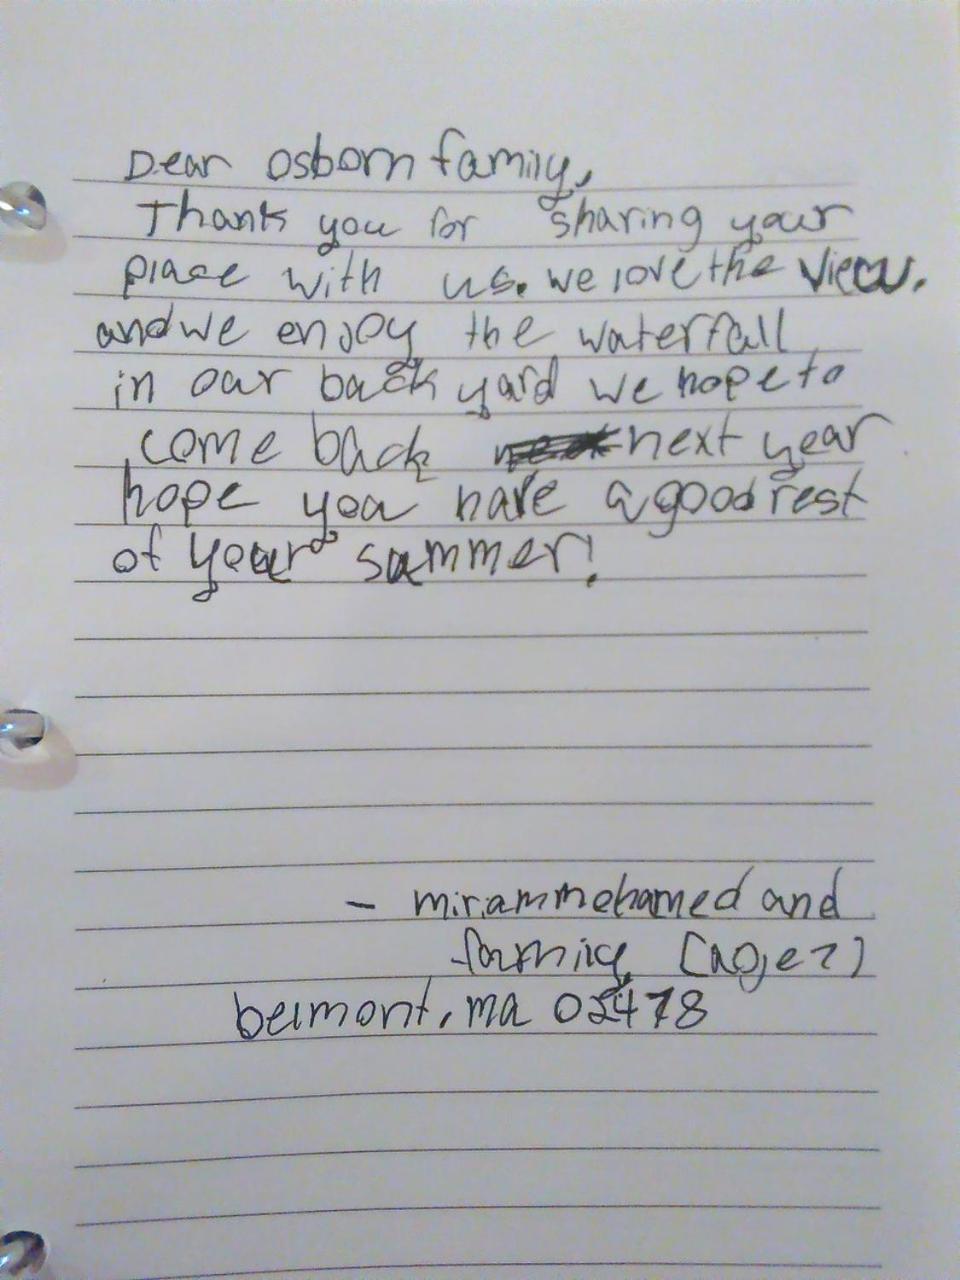 Dear osborn family,
Thank you for sharing your
place with us. we love the view.
and we enjoy the waterfall
in our back yard we hope to
come back next year
hope you have a good rest
of your summer!
- miriam mohamed and
family (age 7)
belmont, ma 02478